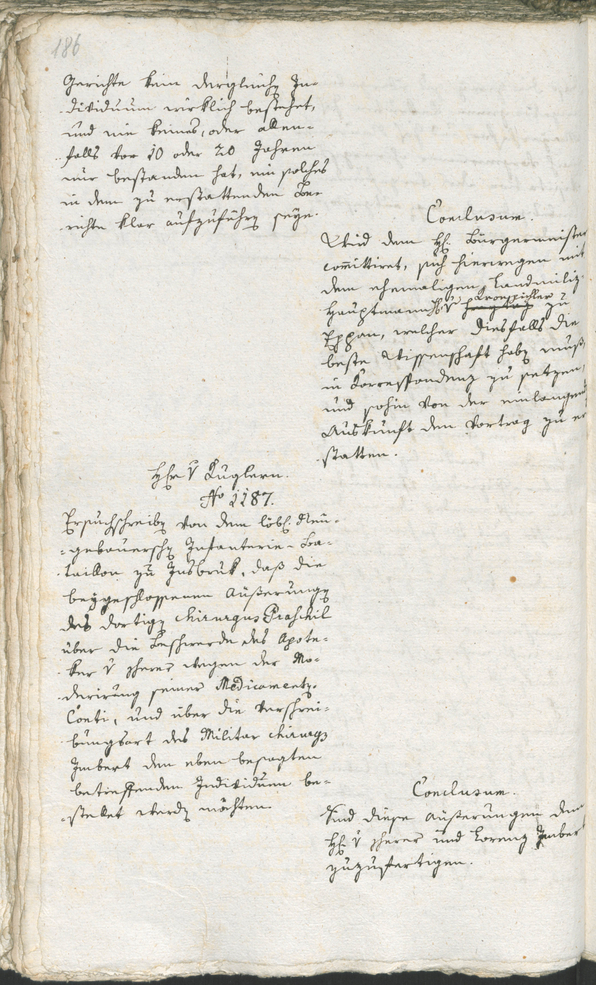 186
Gerichte kein dergleich In-
dividuum wirklich bestehet,
und nie keines, oder allen-
falls vor 10 oder 20 Jahren
nur bestanden hat, ein solches
in dem zu erstattenden Be-
richte klar aufzuführn seye.
Conclusum.
Wird dem H. Bürgermeister
com̄ittiret, sich hierwegen mit
dem ehemaligen Landmiliz-
Hauptmann H. v zu
Eppan, welcher diesfalls die
beste Wissenschaft habn muß,
in Korrespondenz zu setzen,
und sohin von der einlangend
Auskunft den Vortrag zu er
statten.
H. v Kuglern.
No 1187.
Ersuchschreibn von dem löbl. Neu-
gebauerschn Infanterie-Ba-
taillon zu Insbruk, daß die
beygeschlossenen Äußerungn
des dortign chirurgus Praschil
über die Beschwerde des Apote-
ker v wegen der Mo-
derirung seiner Medicamentn-
Conti, und über die Verschrei-
bungsart des Militar chirurgs
Imbert den eben besagten
betreffenden Individuen be-
stellet werdn möchten.
Conclusum.
Sind diese Äußerungen dem
H. v und Lorenz Imbert
zuzufertigen.